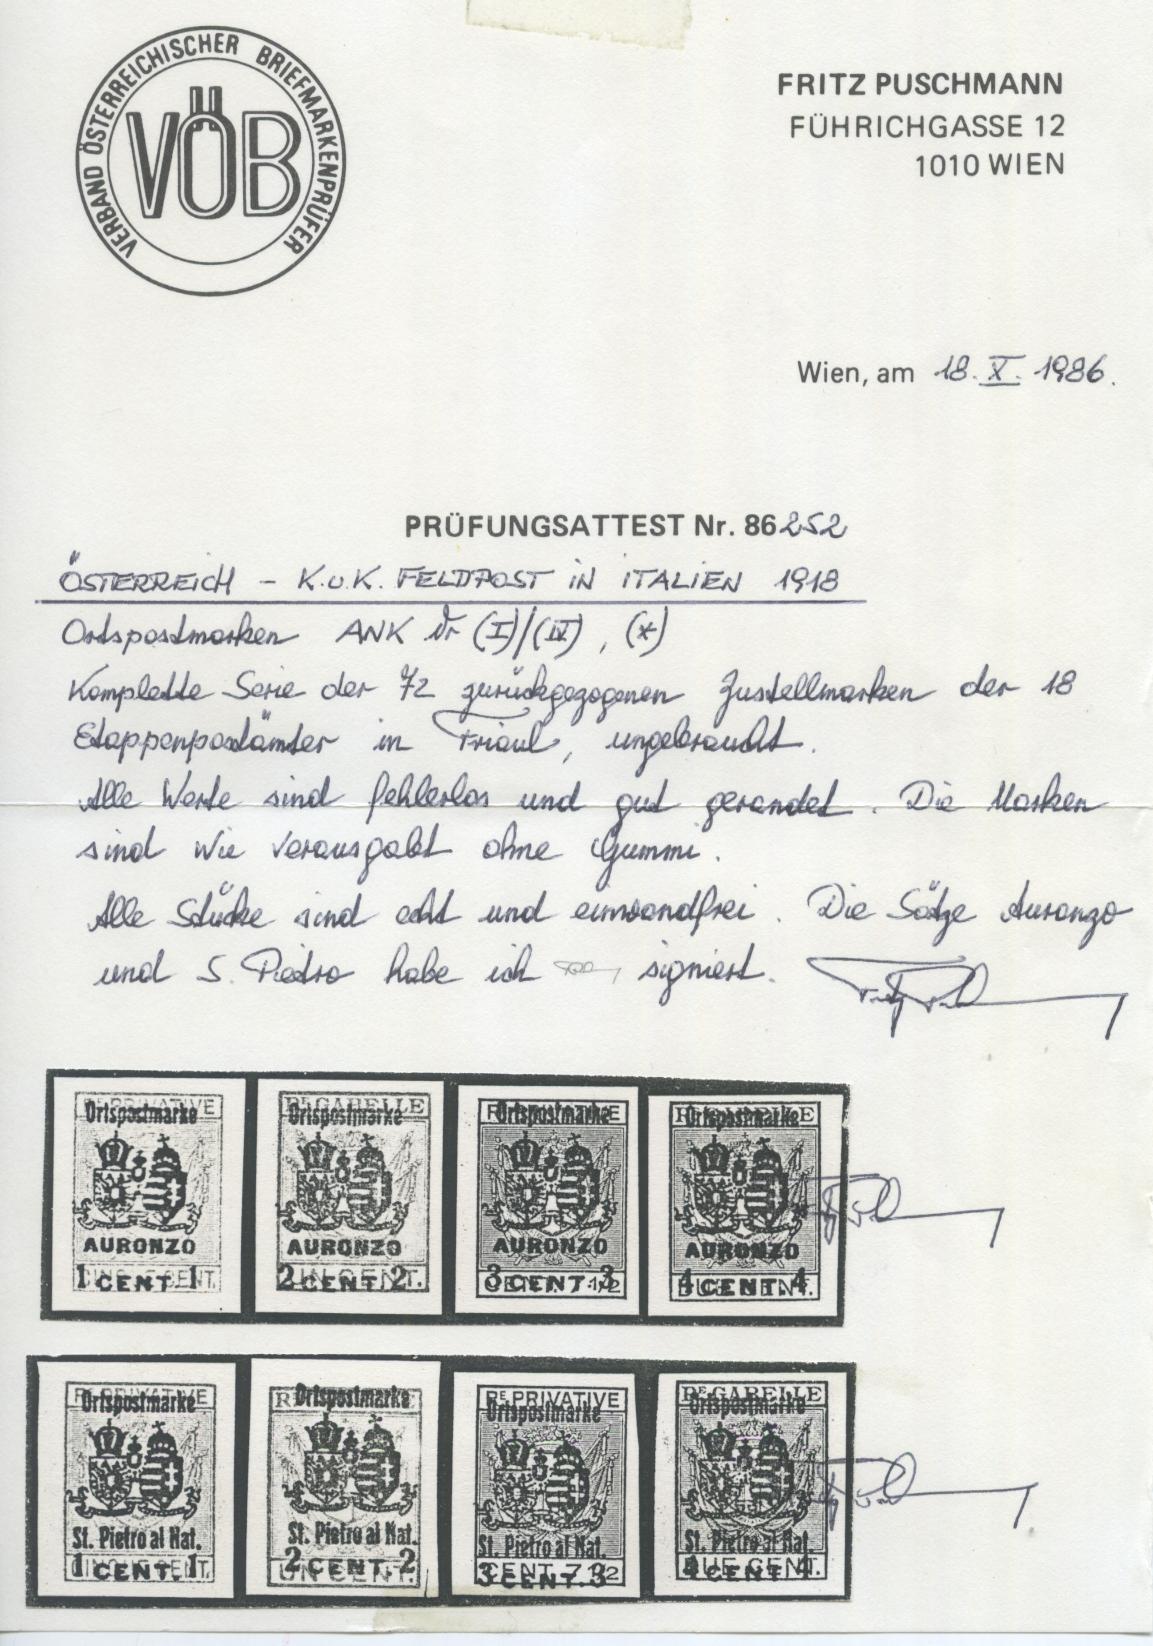 VERBAND ÖSTERREICHISCHER BRIEFMARKENPRÜFER
VÖB
FRITZ PUSCHMANN
FÜHRICHGASSE 12
1010 WIEN
Wien, am 18. X. 1986.
PRÜFUNGSATTEST Nr. 86252
ÖSTERREICH - K.u.K. FELDPOST IN ITALIEN 1918
Ortspostmarken ANK Nr (I)/(IV), (*)
Komplette Serie der 72 zurückgezogenen Zustellmarken der 18
Etappenpostämter in Friaul, ungebraucht.
Alle Werte sind fehlerlos und gut gerandet. Die Marken
sind wie verausgabt ohne Gummi.
Alle Stücke sind echt und einwandfrei. Die Sätze Auronzo
und S. Pietro habe ich signiert.
Ortspostmarke Ortspostmarke Ortspostmarke Ortspostmarke
AURONZO AURONZO AURONZO AURONZO
1 CENT. 1 2 CENT. 2 3 CENT. 3 4 CENT. 4
Ortspostmarke Ortspostmarke Rᴱ PRIVATIVE Rᴱ GABELLE
Ortspostmarke Ortspostmarke
St. Pietro al Nat. St. Pietro al Nat. St. Pietro al Nat. St. Pietro al Nat.
1 CENT. 1 2 CENT. 2 3 CENT. 3 4 CENT. 4